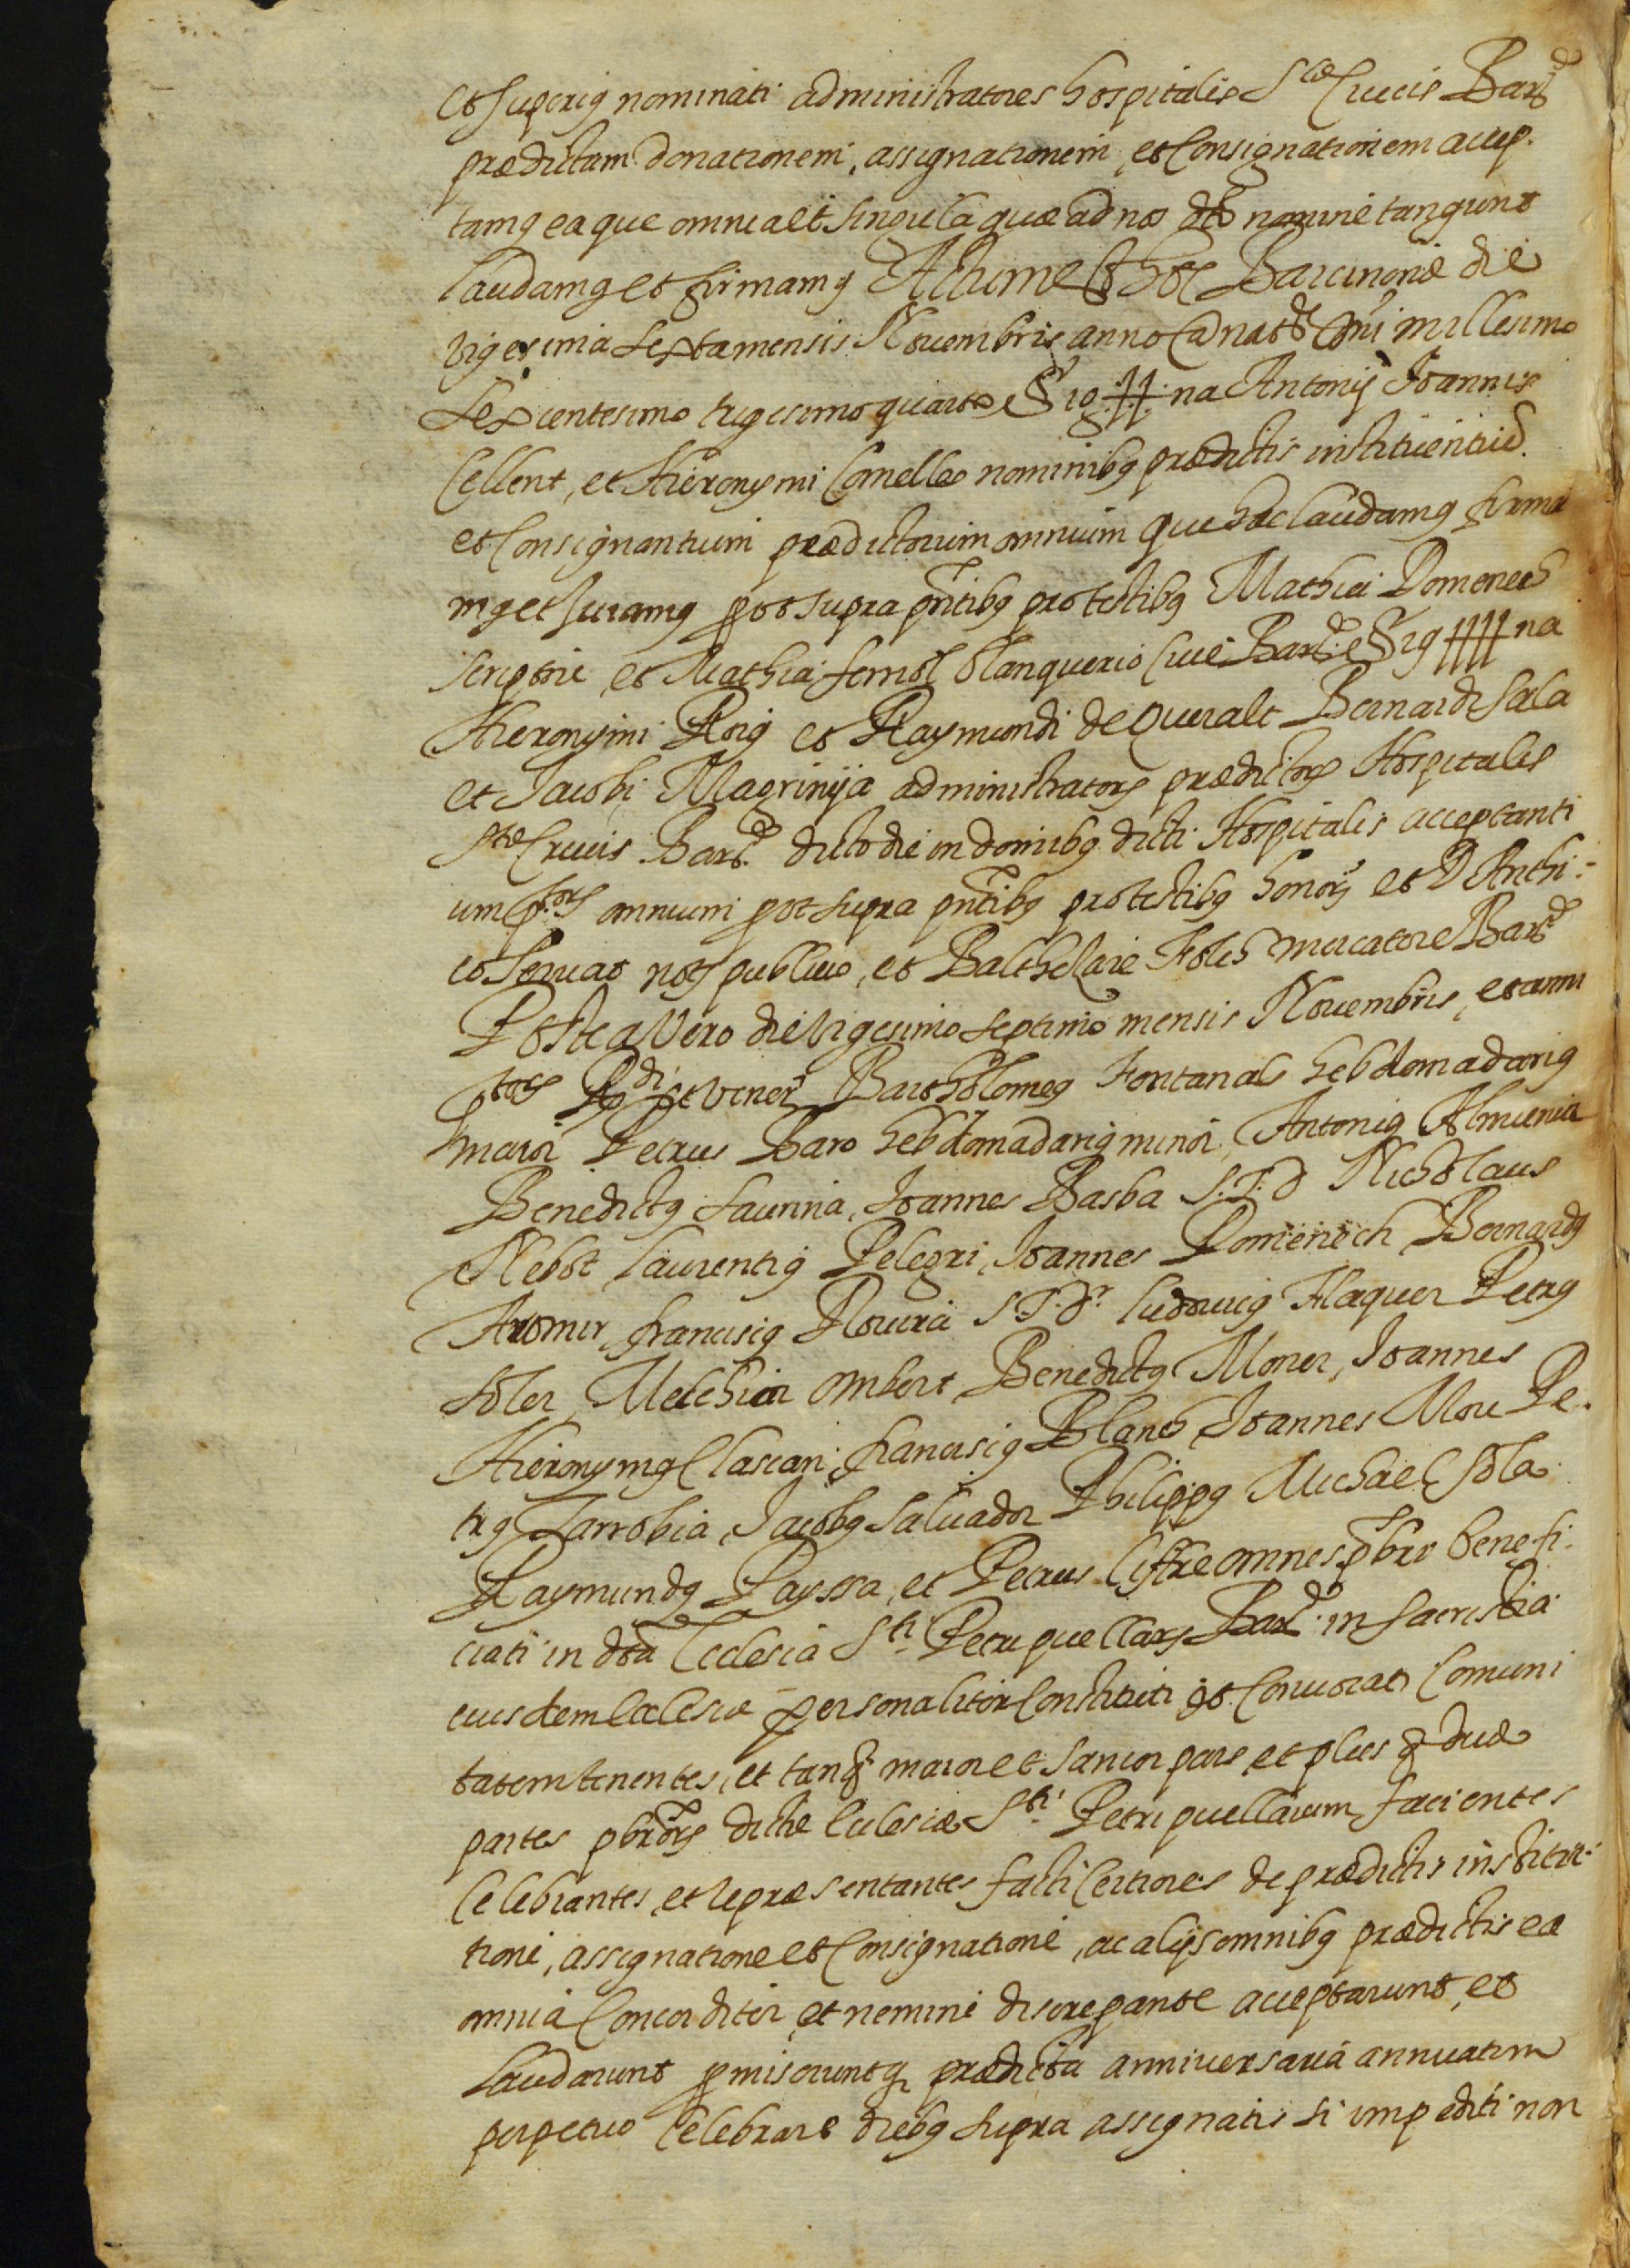 et superiꝰ nominati administratores hospitalis Stæ Crucis Barne
prædictam donationem, assignationem, et Consignationem accep.
tamꝰ eaque omnia et singula quæ ad nos dto nomine tangunt
laudamꝰ et firmamꝰ Actum est hoc Barcinone die
vigesima sexta mensis Novembris anno a natte Dni millesimo
sexcentesimo trigesimo quarto Sig++na Antonij Joannis
Cellent, et Hieronymi Comelles nominibꝰ prædictis instituentiũ
et Consignantium prædictorum omnium que hæc laudamꝰ firma
mꝰ et Juramꝰ pot supra pntibꝰ pro testibꝰ Mathia Domenech
scriptore et Mathia ferrer blanquerio Cive Barne Sig++++na
Hieronymi Roig et Raymundi de Queralt Bernardi Sala
et Jacobi Magrinya administratorꝫ prædictorꝫ Hospitalis
Stæ Crucis Barne dicto die in domibꝰ dicti Hospitalis acceptanti
um ptorꝫ omnium pot supra pntibꝰ pro testibꝰ honorꝫ et D Anthi-
co Servat notꝫ publico, et Balthesare Folch mercatore Barne
Postea vero die vigesimo septimo mensis Novembris, et anni
ptorꝫ Rdi et vener Bartholomeꝰ Fontanals hebdomadariꝰ
maior Petrus Baro hebdomadariꝰ minor, Antoniꝰ Almunia
Benedictꝰ Saurina, Joannes Basba S.T.D Nicholaus
Nebot Laurentiꝰ Pelegri, Joannes Domenech Bernardꝰ
Aromir, franciscꝰ Rovira S.T.Dr. ludovicꝰ Flaquer Petrꝰ
soler, Melchior ombert, Benedictꝰ Moner, Joannes
Hieronymꝰ Clascari, franciscꝰ Blanch, Joannes Mou Pe.
trꝰ Zarrobia, Jacobꝰ Salvador Philippꝰ Michael Sola
Raymundꝰ Payssa, et Petrus Ciffre omnes pbri benefi-
ciati in dta Ecclesia Sti Petri puellarꝫ Barne in Sacristia
eiusdem Ecclesiæ personaliter Constituti et Convocati Comuni
tatem tenentes, et tanꝗ maior et sanior pars, et plus ꝗ duæ
partes pbrorꝫ dictæ Ecclesiæ Sti Petri puellarum, facientes
Celebrantes, et repræsentantes facti Certiores de prædictis institu-
tione, assignatione et Consignatione, ac alijs omnibꝰ prædictis ea
omnia Concorditer, et nemine discrepante acceptarunt, et
laudarunt pmiseruntꝗ prædicta anniversaria annuatim
perpetuo Celebrare diebꝰ supra assignatis si impediti non